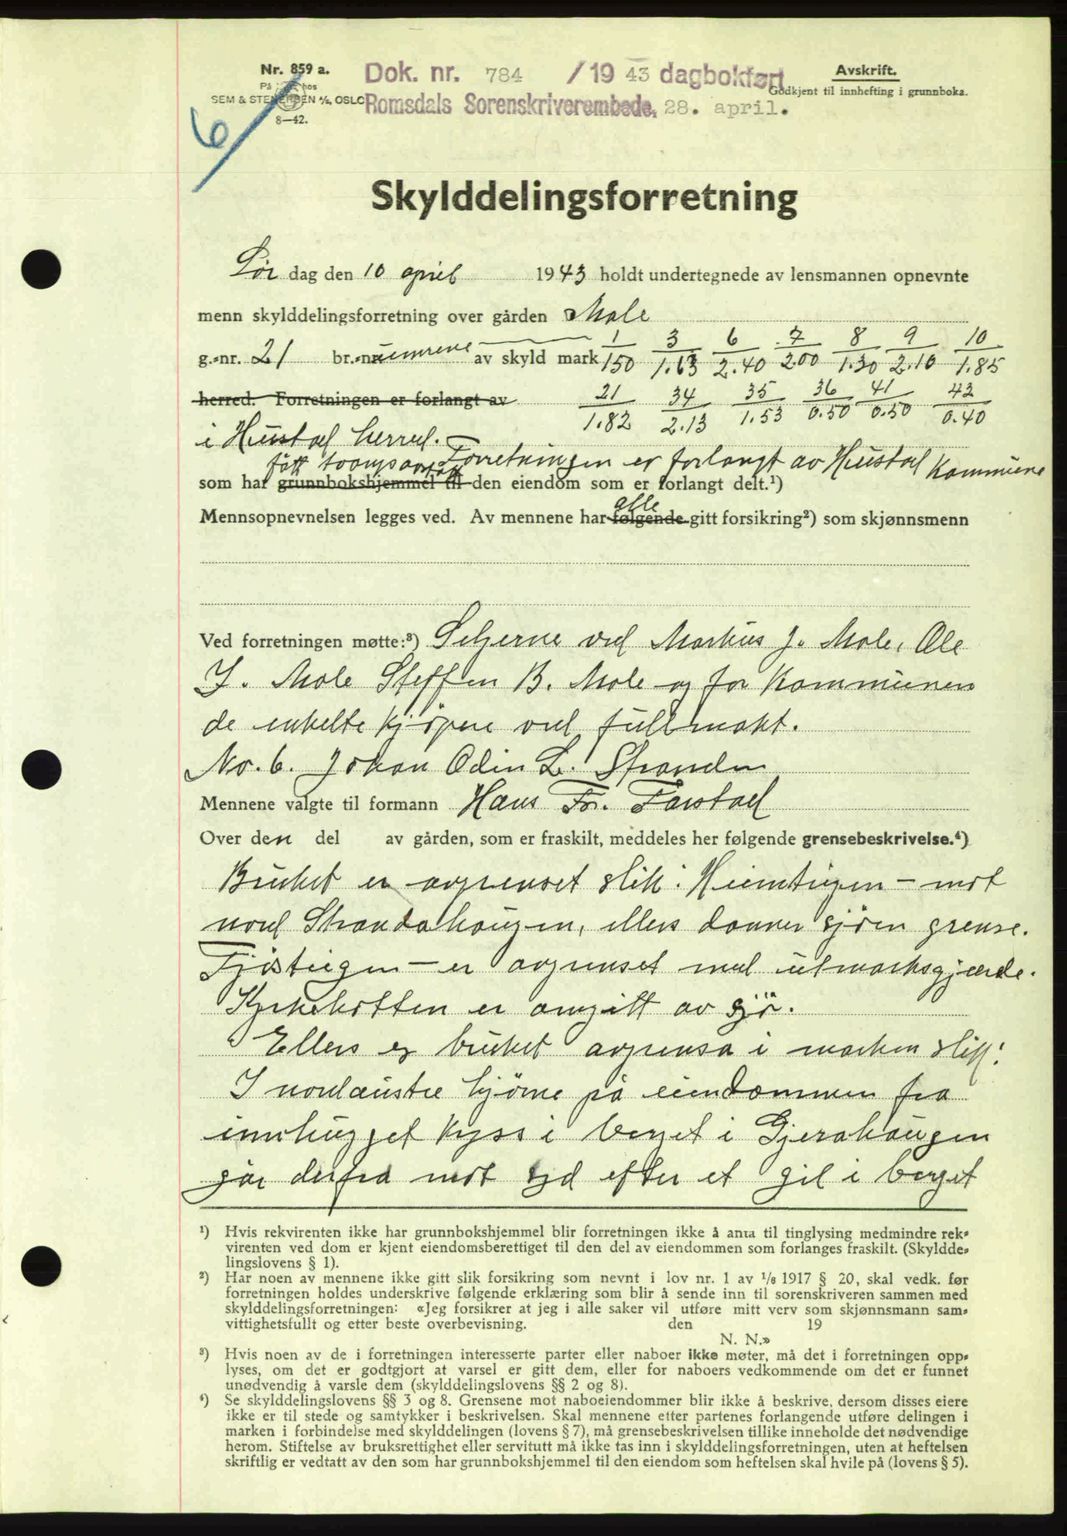 Nr. 859 a.
På hos
SEM & STENERSEN A/S, OSLO
8—42.
6
Dok. nr. 784 /1943 dagbokført
Romsdals Sorenskriverembede, 28. april.
Avskrift.
Godkjent til innhefting i grunnboka.
Skylddelingsforretning
Lør dag den 10 april 1943 holdt undertegnede av lensmannen opnevnte
menn skylddelingsforretning over gården Male
g.-nr. 21 br.-numrene av skyld mark 1/150 3/1.63 6/2.40 7/2.00 8/1.30 9/2.10 10/1.85
herred. Forretningen er forlangt av 21/1.82 34/2.13 35/1.53 36/0.50 41/0.50 42/0.40
i Hustad herred.
Forretningen er forlangt av Hustad Kommune
som har fått grunnbokshjemmel til den eiendom som er forlangt delt.¹)
Mennsopnevnelsen legges ved. Av mennene har følgende alle gitt forsikring²) som skjønnsmenn
Ved forretningen møtte:³) Selgerne ved Markus J. Male, Ole
I. Male Steffen B. Male og for Kommunen
de enkelte kjøpere ved fullmakt.
No. 6. Johan Odin L. Stranden
Mennene valgte til formann Hans Fr. Farstad
Over den del av gården, som er fraskilt, meddeles her følgende grensebeskrivelse.⁴)
Bruket er avgrenset slik: Heimteigen – mot
nord Strandahaugen, ellers danner sjøen grense.
Fjøsteigen – er avgrenset med utmarksgjerde.
Kyrkehotten er omgitt av sjø.
Ellers er bruket avgrensa i marken slik:
I nordaustre hjørne på eiendommen fra
innhugget kyss i berget i Gjerahaugen
går derfra mot syd efter et gil i berget
¹) Hvis rekvirenten ikke har grunnbokshjemmel blir forretningen ikke å anta til tinglysing medmindre rek-
virenten ved dom er kjent eiendomsberettiget til den del av eiendommen som forlanges fraskilt. (Skyldde-
lingslovens § 1).
²) Har noen av mennene ikke gitt slik forsikring som nevnt i lov nr. 1 av 1/8 1917 § 20, skal vedk. før
forretningen holdes underskrive følgende erklæring som blir å sende inn til sorenskriveren sammen med
skylddelingsforretningen: «Jeg forsikrer at jeg i alle saker vil utføre mitt verv som skjønnsmann sam-
vittighetsfullt og etter beste overbevisning. den 19
N. N.»
³) Hvis noen av de i forretningen interesserte parter eller naboer ikke møter, må det i forretningen opp-
lyses, om det er godtgjort at varsel er gitt dem, eller for naboers vedkommende om det er funnet
unødvendig å varsle dem (skylddelingslovens §§ 2 og 8).
⁴) Se skylddelingslovens §§ 3 og 8. Grensene mot naboeiendommer blir ikke å beskrive, dersom disses eiere
ikke er til stede og samtykker i beskrivelsen. Skal mennene etter partenes forlangende utføre delingen i
marken i forbindelse med skylddelingen (lovens § 7), må grensebeskrivelsen tillike inneholde det nødvendige
herom. Stiftelse av bruksrettighet eller servitutt må ikke tas inn i skylddelingsforretningen, uten at heftelsen
skriftlig er vedtatt av den som har grunnbokshjemmel til den eiendom som heftelsen skal hvile på (lovens § 5).